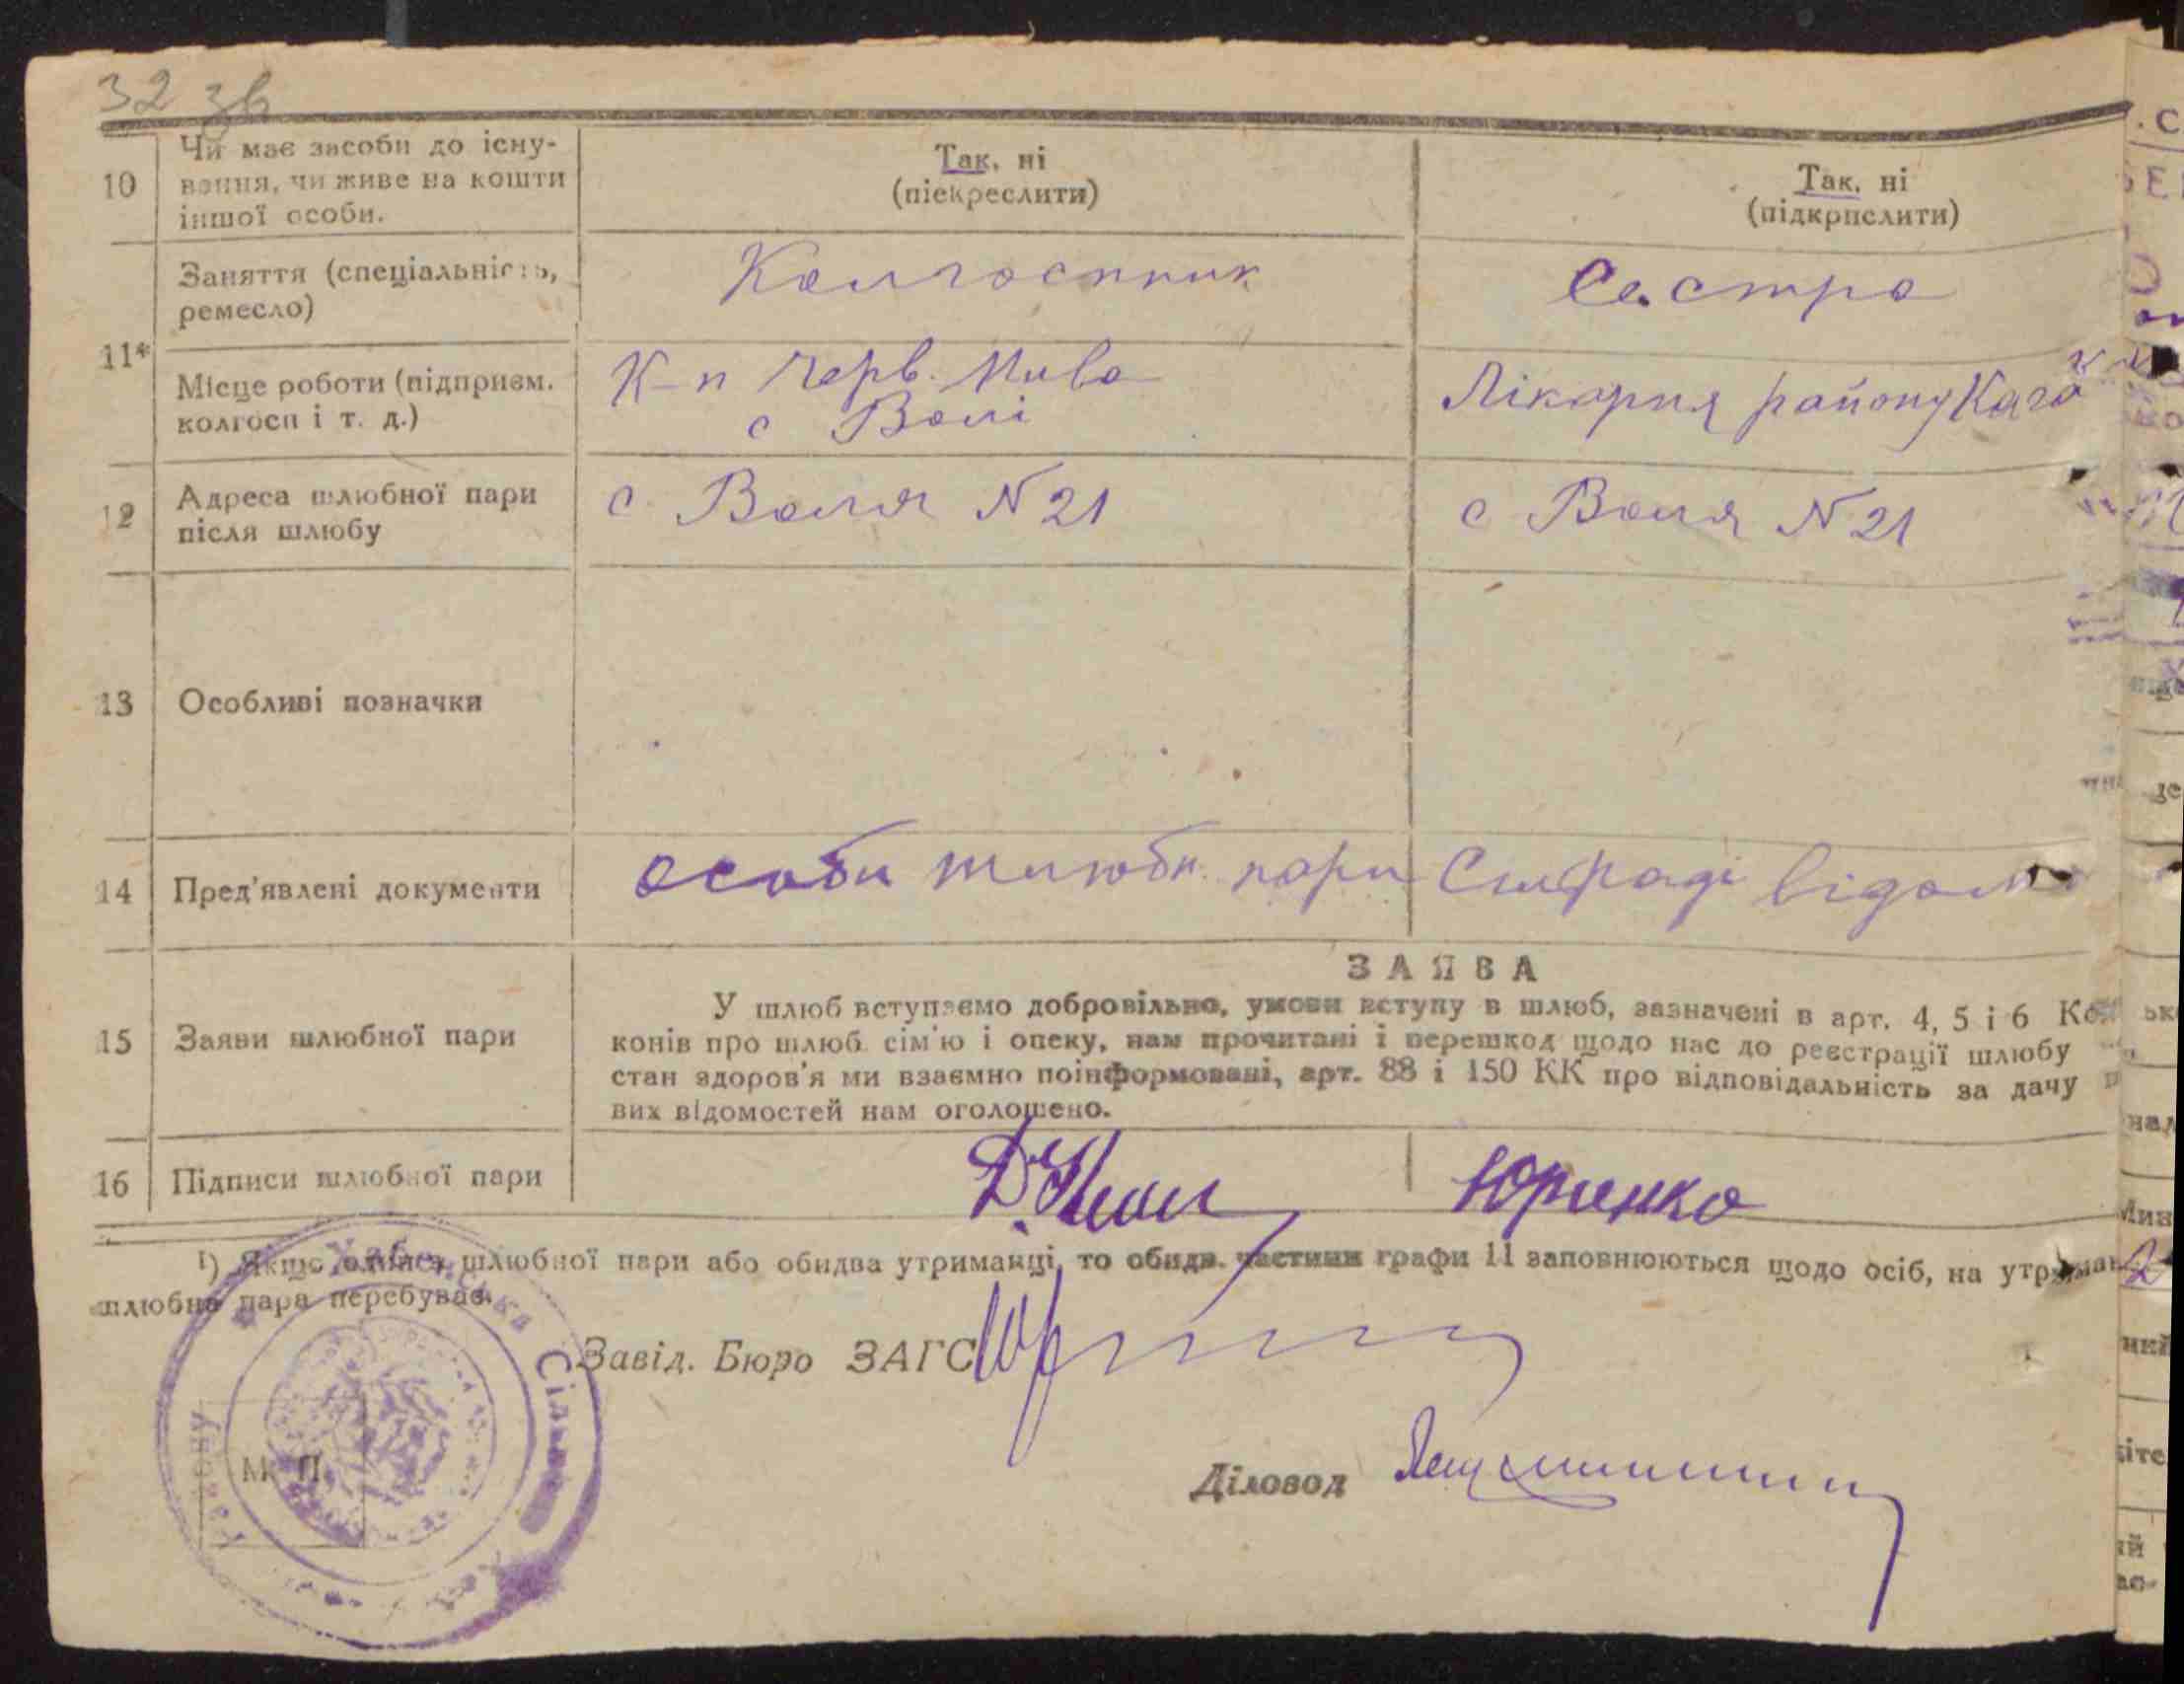 32 зв
10
Чи має засоби до існу-
вання, чи живе на кошти
іншої особи.
Так, ні
(піекреслити)
Так, ні
(підкрпслити)
11*
Заняття (спеціальність,
ремесло)
Колгоспник
Сестра
Місце роботи (підприєм.
колгосп і т. д.)
К-п Черв. Нива
с Волі
Лікарня району
12
Адреса шлюбної пари
після шлюбу
с Воля N 21
с Воля N 21
13
Особливі позначки
14
Пред'явлені документи
особи шлюбн. пари Сільраді відом
15
Заяви шлюбної пари
ЗАЯВА
У шлюб вступаємо добровільно, умови вступу в шлюб, зазначені в арт. 4, 5 і 6
конів про шлюб. сім'ю і опеку, нам прочитані і перешкод щодо нас до реєстрації шлюбу
стан здоров'я ми взаємно поінформовані, арт. 88 і 150 КК про відповідальність за дачу
вих відомостей нам оголошено.
16
Підписи шлюбної пари
Юрченко
¹) Якщо один з шлюбної пари або обидва утриманці, то обидв. частини графи 11 заповнюються щодо осіб, на утриман
шлюбна пара перебуває.
Завід. Бюро ЗАГС
М. П.
Діловод